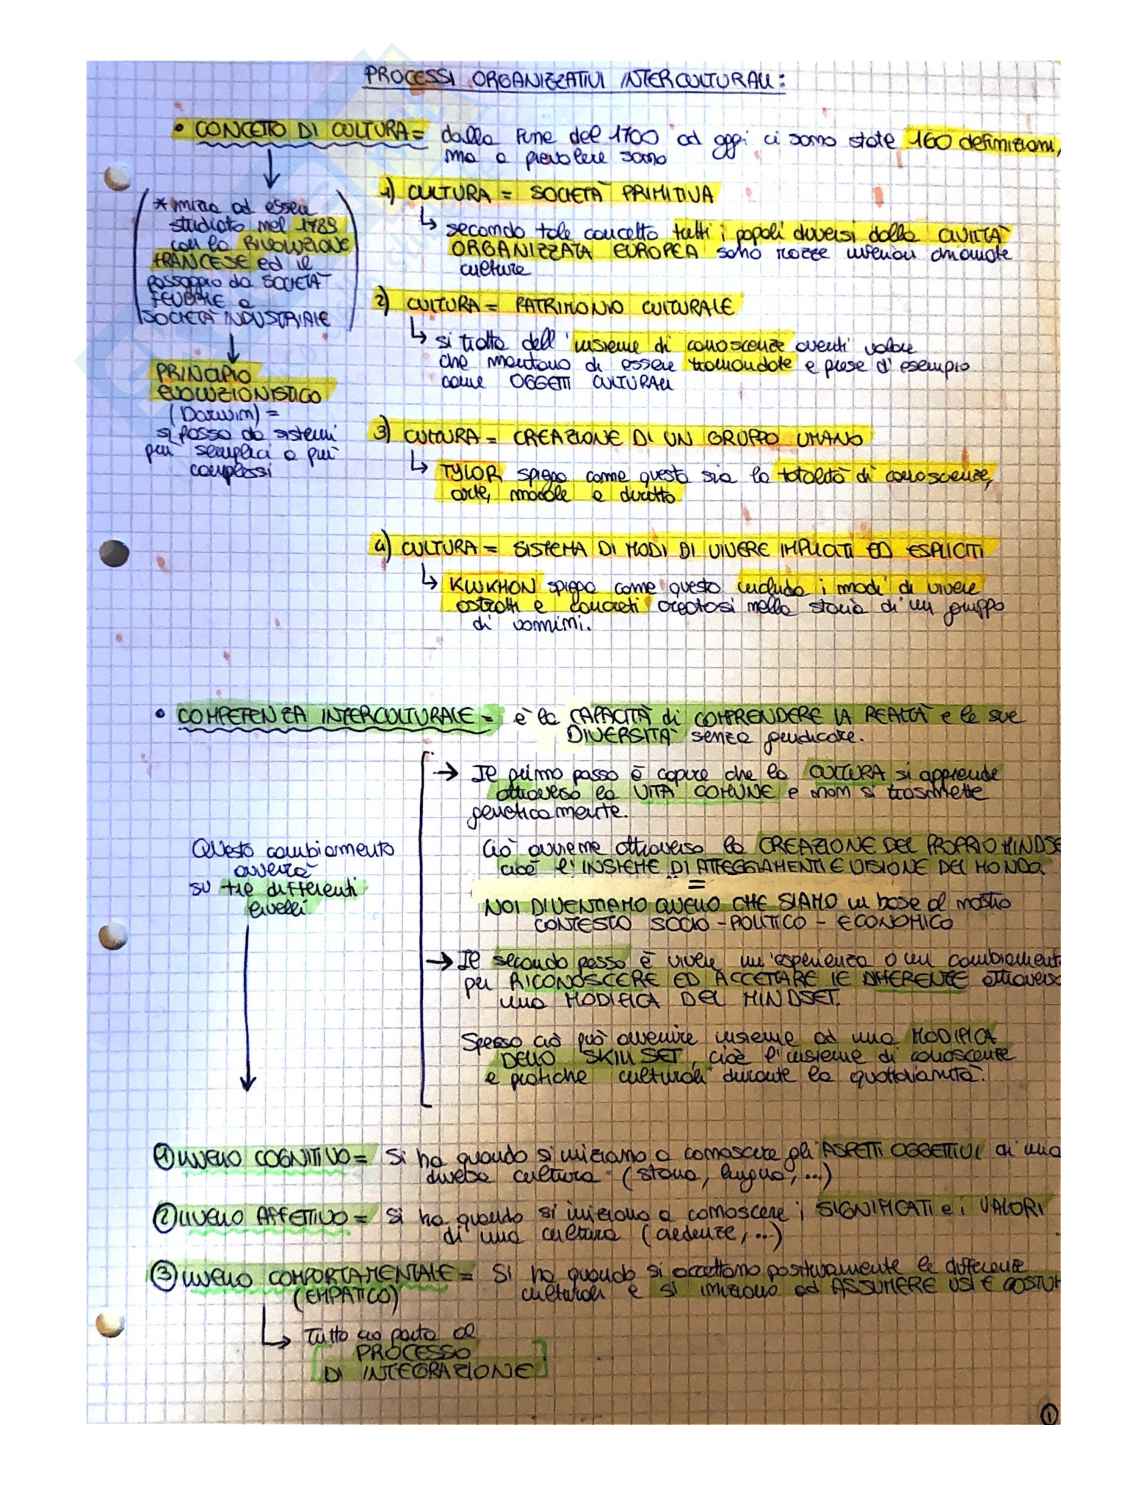 PROCESSI ORGANIZZATIVI INTERCULTURALI:
• CONCETTO DI CULTURA = dalla fine del 1700 ad oggi ci sono state 160 definizioni,
ma a prevalere sono
* inizia ad essere
studiato nel 1789
con la RIVOLUZIONE
FRANCESE ed il
passaggio da SOCIETÀ
FEUDALE a
SOCIETÀ INDUSTRIALE
PRINCIPIO
EVOLUZIONISTICO
(Darwin) =
si passa da sistemi
più semplici a più
complessi
1) CULTURA = SOCIETÀ PRIMITIVA
secondo tale concetto tutti i popoli diversi dalla CIVILTÀ
ORGANIZZATA EUROPEA sono razze inferiori chiamate
culture
2) CULTURA = PATRIMONIO CULTURALE
si tratta dell'insieme di conoscenze aventi valore
che meritano di essere tramandate e prese d'esempio
come OGGETTI CULTURALI
3) CULTURA = CREAZIONE DI UN GRUPPO UMANO
TYLOR spiega come questa sia la totalità di conoscenze,
arte, morale e diritto
4) CULTURA = SISTEMA DI MODI DI VIVERE IMPLICITI ED ESPLICITI
spiega come questo includa i modi di vivere
astratti e concreti creatosi nella storia di un gruppo
di uomini.
• COMPETENZA INTERCULTURALE = è la CAPACITÀ di COMPRENDERE LA REALTÀ e le sue
DIVERSITÀ senza giudicare.
→ Il primo passo è capire che la CULTURA si apprende
attraverso la VITA COMUNE e non si trasmette
geneticamente.
Ciò avviene attraverso la CREAZIONE DEL PROPRIO MINDSE
cioè l'INSIEME DI ATTEGGIAMENTI E VISIONE DEL MONDO
=
NOI DIVENTIAMO QUELLO CHE SIAMO in base al nostro
CONTESTO SOCIO - POLITICO - ECONOMICO
→ Il secondo passo è vivere un'esperienza o un cambiament
per RICONOSCERE ED ACCETTARE LE DIFFERENZE attravers
una MODIFICA DEL MINDSET.
Spesso ciò può avvenire insieme ad una MODIFICA
DELLO SKILL SET, cioè l'insieme di conoscenze
e pratiche culturali durante la quotidianità.
Questo cambiamento
avverrà
su tre differenti
livelli
① LIVELLO COGNITIVO = Si ha quando si iniziano a conoscere gli ASPETTI OGGETTIVI di una
diversa cultura (storia, lingua, ...)
② LIVELLO AFFETTIVO = Si ha quando si iniziano a conoscere i SIGNIFICATI e i VALORI
di una cultura (credenze, ...)
③ LIVELLO COMPORTAMENTALE = Si ha quando si accettano positivamente le differenze
(EMPATICO) culturali e si iniziano ad ASSUMERE USI E COSTUM
Tutto ciò porta al
PROCESSO
DI INTEGRAZIONE
①